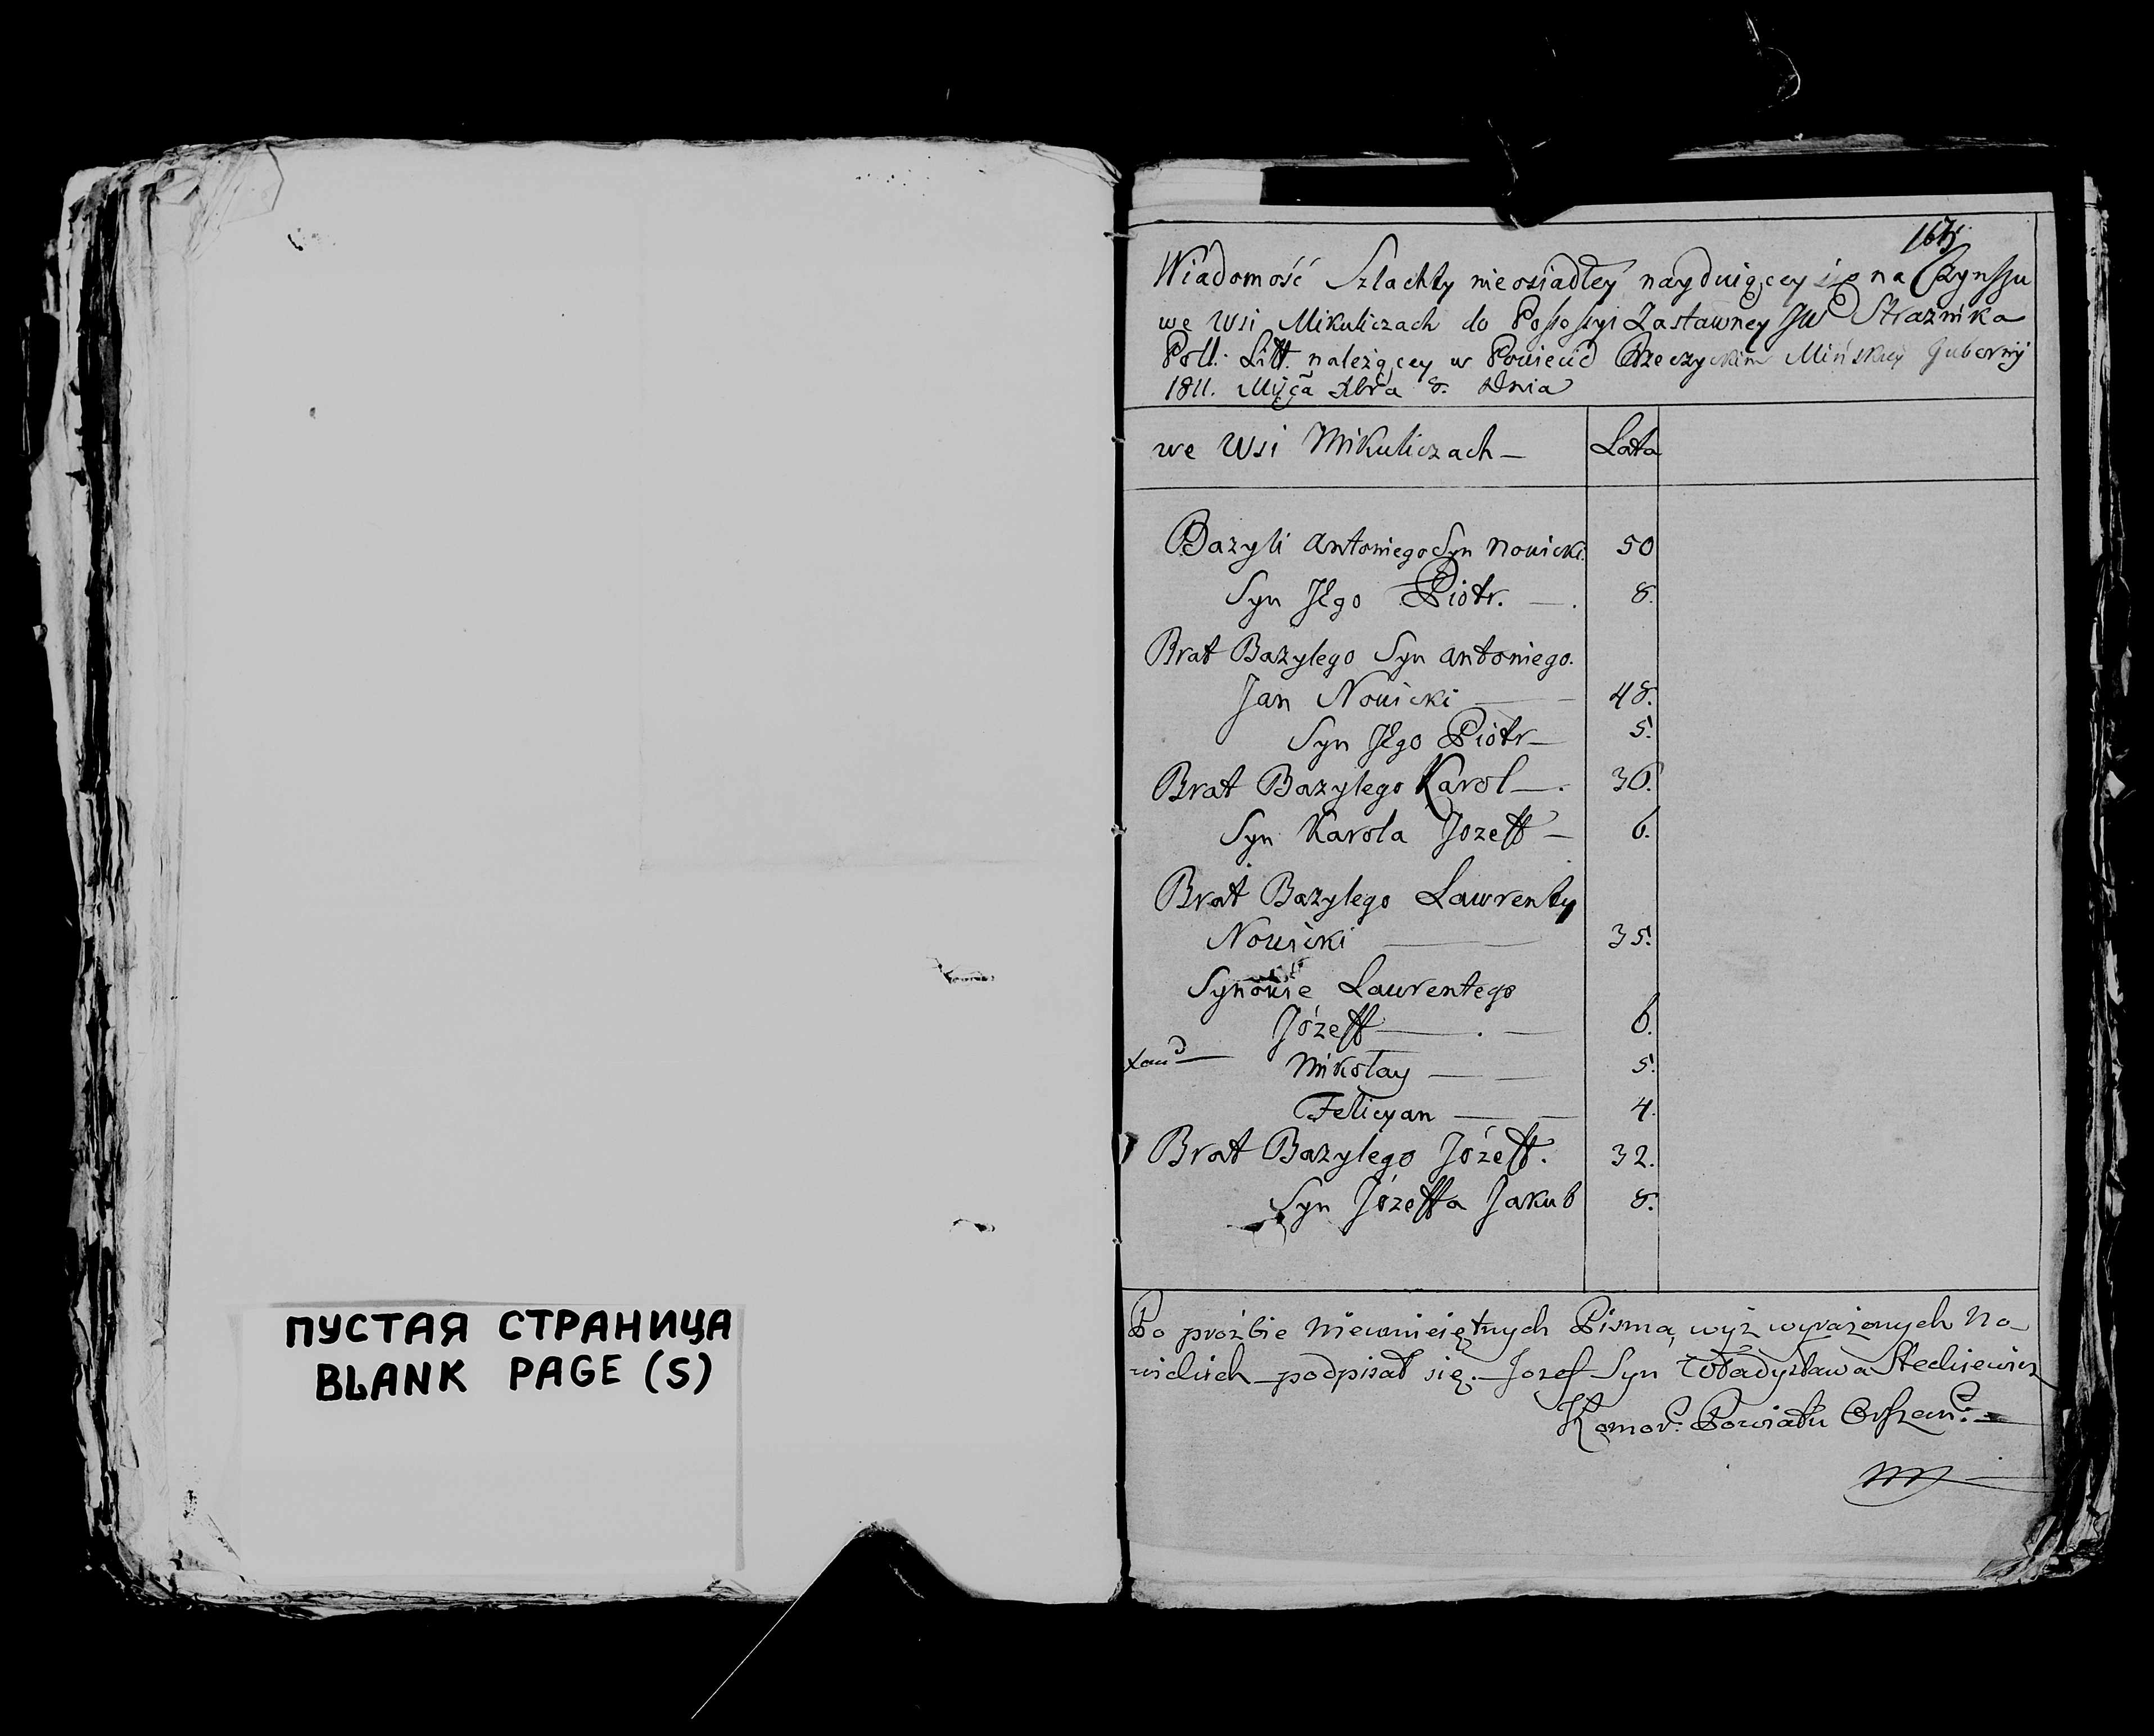 ПУСТАЯ СТРАНИЦА
BLANK PAGE (S)
Wiadomość Szlachty nieosiadłey nayduiącey się na Czynszu
we Wsi Mikuliczach do Possessyi Zastawney JW Strażnika
Poll: Litt. należącey w Powiecie Rzeczyckim Mińskiey Gubernij
1811. Mijca Xbra 8. Dnia
we Wsi Mikuliczach — Lata
Bazyli Antoniego Syn Nowicki. 50
Syn Jego Piotr. — . 8.
Brat Bazylego Syn Antoniego.
Jan Nowicki — 48.
Syn Jego Piotr — 5.
Brat Bazylego Karol — . 36.
Syn Karola Jozeff — 6.
Brat Bazylego Lawrenty
Nowicki — 35.
Synowie Lawrentego
Józeff — . — 6.
Mikołay — — 5.
Felicyan — — 4.
Brat Bazylego Józeff. 32.
Syn Józeffa Jakub 8.
Po proźbie nieumieiętnych Pisma, wyż wyrażonych No-
wickich podpisał się. — Jozef Syn Władysława
Komor: Powiatu Orszan: —